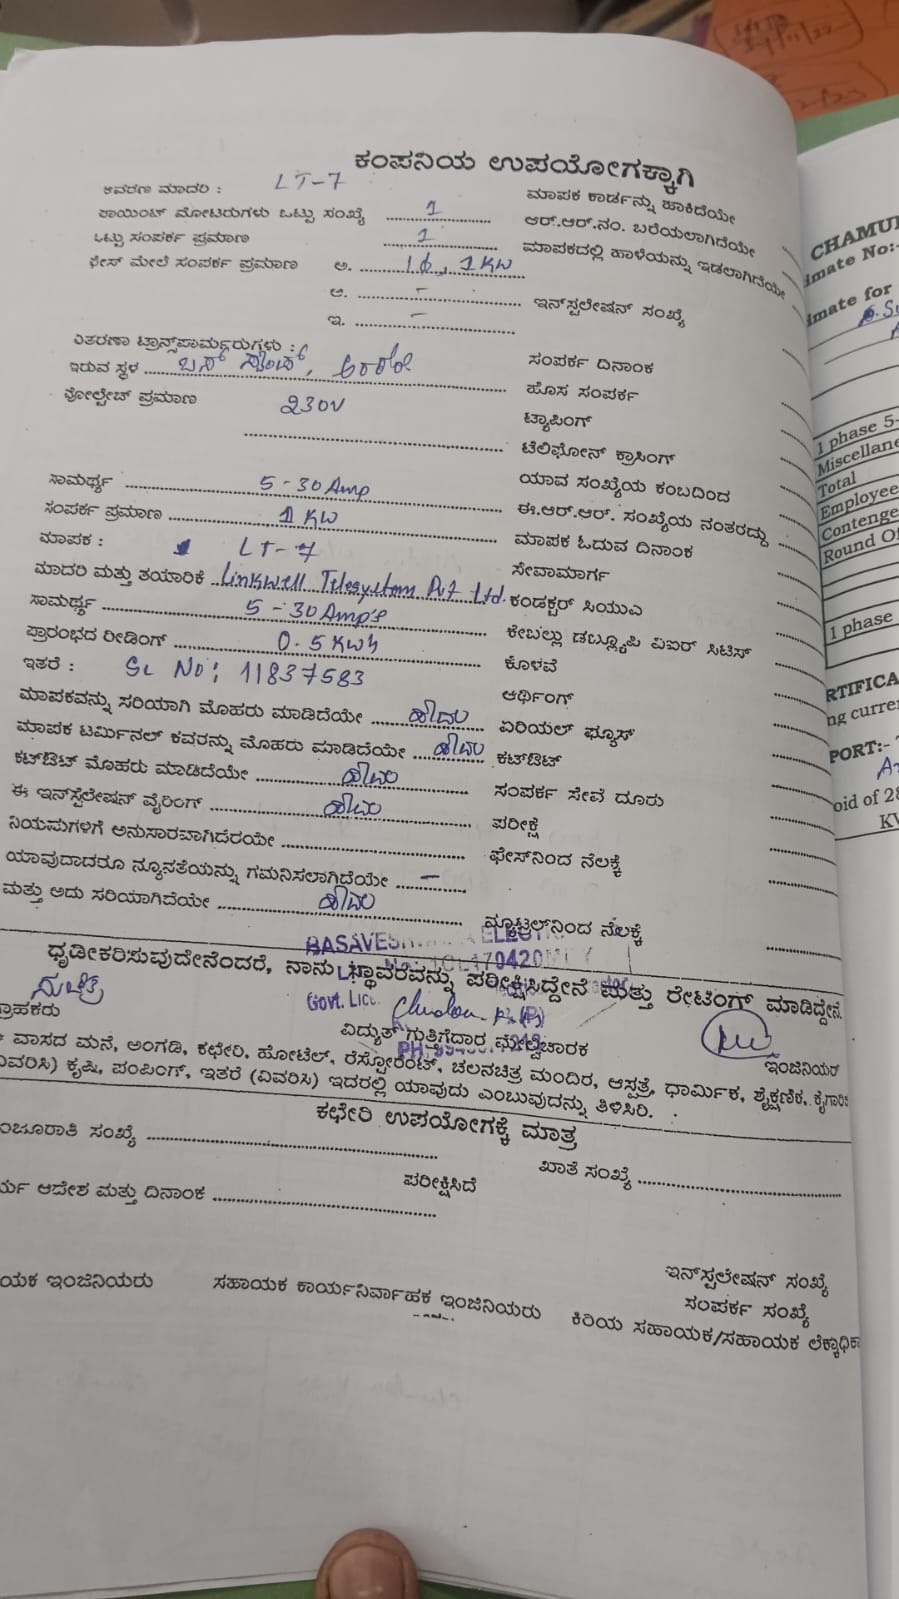 ಕಂಪನಿಯ ಉಪಯೋಗಕ್ಕಾಗಿ
ಆವರಣ ಮಾದರಿ : LT-7
ಪಾಯಿಂಟ್ ಮೋಟರುಗಳು ಒಟ್ಟು ಸಂಖ್ಯೆ 1
ಒಟ್ಟು ಸಂಪರ್ಕ ಪ್ರಮಾಣ 1
ಫೇಸ್ ಮೇಲೆ ಸಂಪರ್ಕ ಪ್ರಮಾಣ ಅ. 1ϕ, 1KW
ಆ. -
ಇ. -
ವಿತರಣಾ ಟ್ರಾನ್ಸ್‌ಫಾರ್ಮರುಗಳು :
ಇರುವ ಸ್ಥಳ ಬಸ್ ಸ್ಟ್ಯಾಂಡ್,
ವೋಲ್ಟೇಜ್ ಪ್ರಮಾಣ 230V
ಸಾಮರ್ಥ್ಯ 5-30Amp
ಸಂಪರ್ಕ ಪ್ರಮಾಣ 1 KW
ಮಾಪಕ : LT-7
ಮಾದರಿ ಮತ್ತು ತಯಾರಿಕೆ Linkwell Telesystem Pvt Ltd.
ಸಾಮರ್ಥ್ಯ 5-30Amp's
ಪ್ರಾರಂಭದ ರೀಡಿಂಗ್ 0.5 KWh
ಇತರೆ : SL No: 11837583
ಮಾಪಕವನ್ನು ಸರಿಯಾಗಿ ಮೊಹರು ಮಾಡಿದೆಯೇ ಹೌದು
ಮಾಪಕ ಟರ್ಮಿನಲ್ ಕವರನ್ನು ಮೊಹರು ಮಾಡಿದೆಯೇ ಹೌದು
ಕಟ್‌ಔಟ್ ಮೊಹರು ಮಾಡಿದೆಯೇ ಹೌದು
ಈ ಇನ್‌ಸ್ಟಲೇಷನ್ ವೈರಿಂಗ್ ಹೌದು
ನಿಯಮಗಳಿಗೆ ಅನುಸಾರವಾಗಿದೆರಯೇ
ಯಾವುದಾದರೂ ನ್ಯೂನತೆಯನ್ನು ಗಮನಿಸಲಾಗಿದೆಯೇ -
ಮತ್ತು ಅದು ಸರಿಯಾಗಿದೆಯೇ ಹೌದು
ಮಾಪಕ ಕಾರ್ಡನ್ನು ಹಾಕಿದೆಯೇ
ಆರ್.ಆರ್.ನಂ. ಬರೆಯಲಾಗಿದೆಯೇ
ಮಾಪಕದಲ್ಲಿ ಹಾಳೆಯನ್ನು ಇಡಲಾಗಿದೆಯೇ
ಇನ್‌ಸ್ಟಲೇಷನ್ ಸಂಖ್ಯೆ
ಸಂಪರ್ಕ ದಿನಾಂಕ
ಹೊಸ ಸಂಪರ್ಕ
ಟ್ಯಾಪಿಂಗ್
ಟೆಲಿಫೋನ್ ಕ್ರಾಸಿಂಗ್
ಯಾವ ಸಂಖ್ಯೆಯ ಕಂಬದಿಂದ
ಈ.ಆರ್.ಆರ್. ಸಂಖ್ಯೆಯ ನಂತರದ್ದು
ಮಾಪಕ ಓದುವ ದಿನಾಂಕ
ಸೇವಾಮಾರ್ಗ
ಕಂಡಕ್ಟರ್ ಸಿಯುಎ
ಕೇಬಲ್ಲು ಡಬ್ಲ್ಯೂಪಿ ವಿಐರ್ ಸಿಟಿಸ್
ಕೊಳವೆ
ಆರ್ಥಿಂಗ್
ಏರಿಯಲ್ ಫ್ಯೂಸ್
ಕಟ್‌ಔಟ್
ಸಂಪರ್ಕ ಸೇವೆ ದೂರು
ಪರೀಕ್ಷೆ
ಫೇಸ್‌ನಿಂದ ನೆಲಕ್ಕೆ
ನ್ಯೂಟ್ರಲ್‌ನಿಂದ ನೆಲಕ್ಕೆ
ಧೃಡೀಕರಿಸುವುದೇನೆಂದರೆ, ನಾನು ಸ್ಥಾವರವನ್ನು ಪರೀಕ್ಷಿಸಿದ್ದೇನೆ ಮತ್ತು ರೇಟಿಂಗ್ ಮಾಡಿದ್ದೇನೆ.
Govt. Lice.
ಗ್ರಾಹಕರು
ವಿದ್ಯುತ್ ಗುತ್ತಿಗೆದಾರ ಮೇಲ್ವಿಚಾರಕ
ಇಂಜಿನಿಯರ್
ವಾಸದ ಮನೆ, ಅಂಗಡಿ, ಕಛೇರಿ, ಹೋಟೆಲ್, ರೆಸ್ಟೋರೆಂಟ್, ಚಲನಚಿತ್ರ ಮಂದಿರ, ಆಸ್ಪತ್ರೆ, ಧಾರ್ಮಿಕ, ಶೈಕ್ಷಣಿಕ, ಕೈಗಾರಿಕ
ವಿವರಿಸಿ) ಕೃಷಿ, ಪಂಪಿಂಗ್, ಇತರೆ (ವಿವರಿಸಿ) ಇದರಲ್ಲಿ ಯಾವುದು ಎಂಬುವುದನ್ನು ತಿಳಿಸಿರಿ.
ಕಛೇರಿ ಉಪಯೋಗಕ್ಕೆ ಮಾತ್ರ
ಂಜೂರಾತಿ ಸಂಖ್ಯೆ
ಖಾತೆ ಸಂಖ್ಯೆ
ಪರೀಕ್ಷಿಸಿದೆ
ರ್ಯ ಆದೇಶ ಮತ್ತು ದಿನಾಂಕ
ಇನ್‌ಸ್ಟಲೇಷನ್ ಸಂಖ್ಯೆ
ಸಂಪರ್ಕ ಸಂಖ್ಯೆ
ಯಕ ಇಂಜಿನಿಯರು ಸಹಾಯಕ ಕಾರ್ಯನಿರ್ವಾಹಕ ಇಂಜಿನಿಯರು ಕಿರಿಯ ಸಹಾಯಕ/ಸಹಾಯಕ ಲೆಕ್ಕಾಧಿಕಾ
CHAMU
imate No:-
imate for
1 phase 5-
Miscellane
Total
Employee
Contenge
Round Of
1 phase
RTIFICA
ng curren
PORT:-
oid of 28
KV